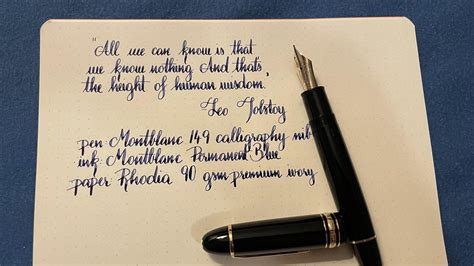 "All we can know is that
we know nothing. And that's
the height of human wisdom."
Leo Tolstoy
pen: Montblanc 149 calligraphy nib
ink: Montblanc Permanent Blue
paper Rhodia 90 gsm premium ivory